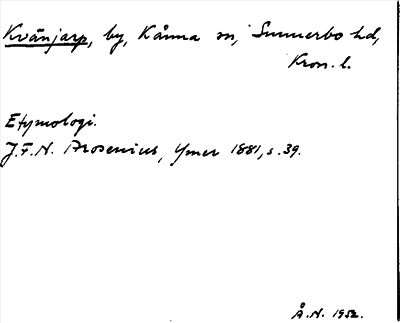 Kvänjarp, by, Kånna sn, Sunnerbo hd,
Kron. l.
Etymologi.
J.F.N. Arosenius, Ymer 1881, s. 39.
Å.N. 1952.